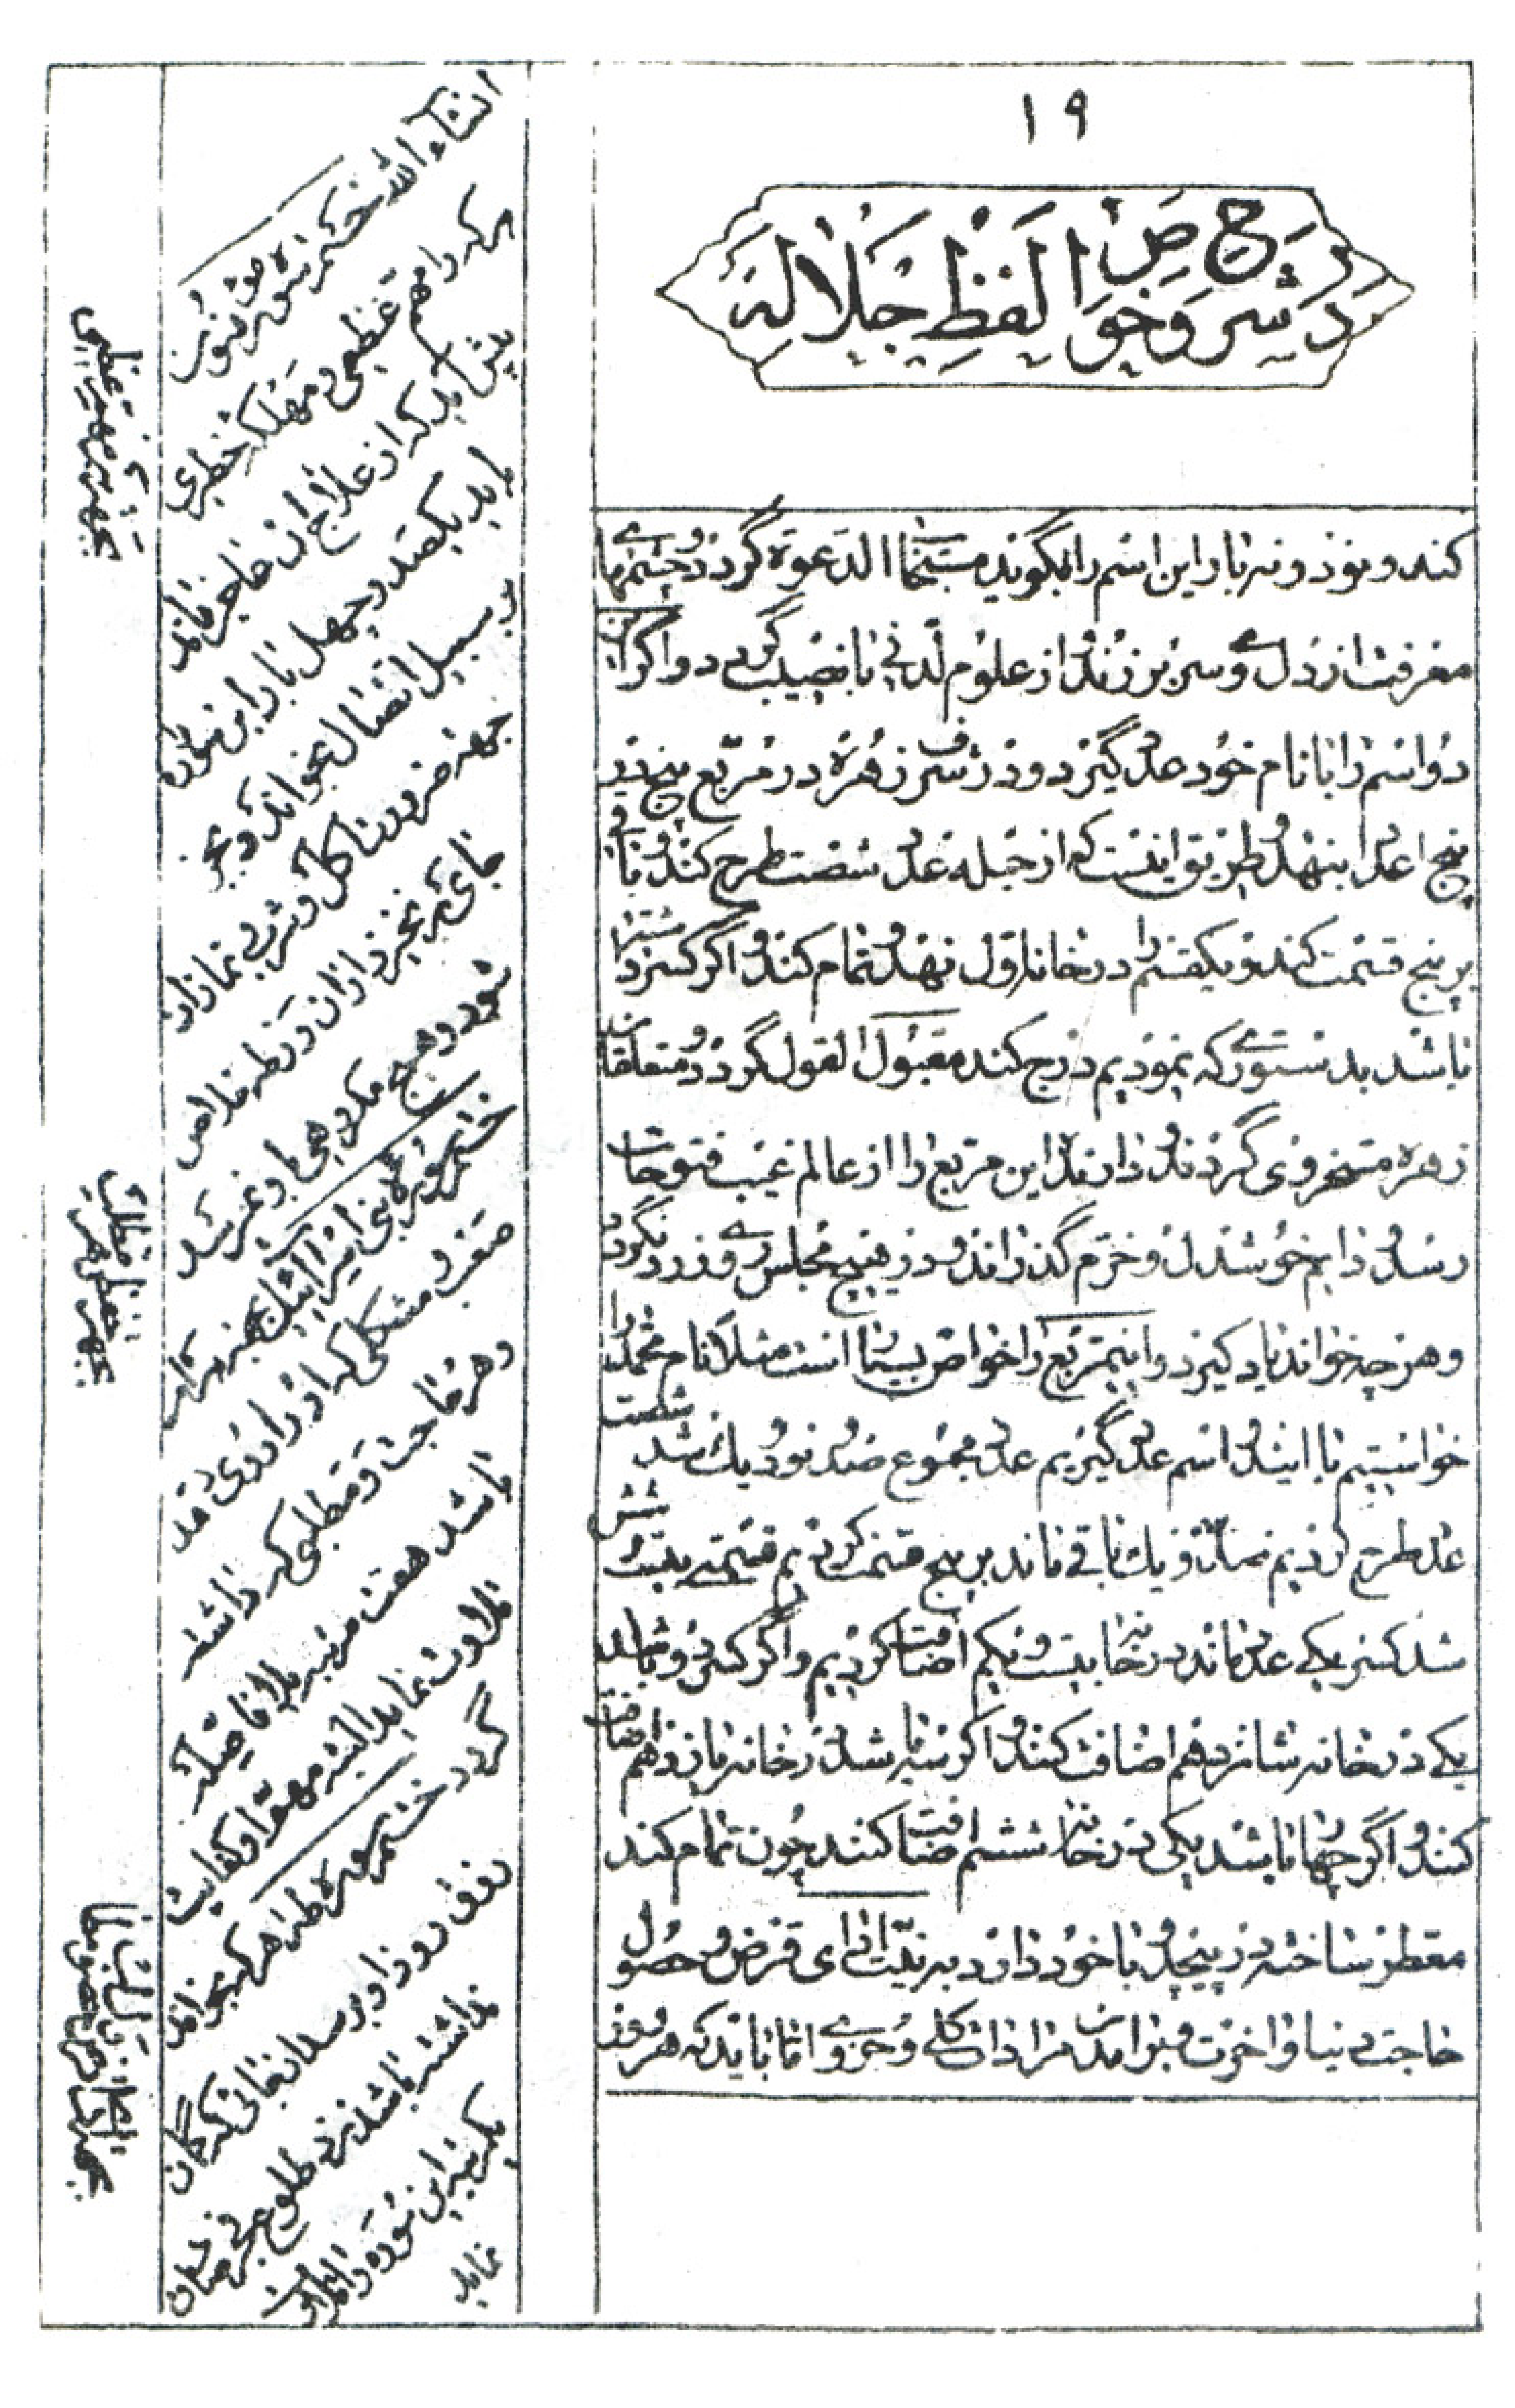 ۱۹
در شرح و خواص لفظ جلاله
کند و نود و نه بار این اسم را بگوید مستجاب الدعوة گردد و چشمهای
معرفت از دل وی سر بر زند از علوم لدنی با نصیب گردد و اگر این
دو اسم را با نام خود عدد گیرد و در شرف زهره در مربع پنج در
پنج اعداد بنهد و طریق اینست که از جمله عدد شصت طرح کند و باقی
بر پنج قسمت کند و یکقسم را در خانه اول نهد و تمام کند و اگر کسر داشته
باشد بدستوری که نمودیم درج کند مقبول القول گردد و متعلقات
زهره مسخر وی گردند و دارنده این مربع را از عالم غیب فتوحات
رسد و دایم خوشدل و خرم گذراند و در هیچ مجلس وی زرد نگردد
و هر چه خواند یاد گیرد و اینمربع را خواص بسیار است مثلا نام محمد را
خواستیم با ایندو اسم عدد گیریم عدد مجموع صد و نود و یک شد شصت
عدد طرح کردیم صد و سی و یک باقی ماند بر پنج قسمت کردیم قسمتی بیست و شش
شد کسر یکی عدد ماند در خانه بیست و یکم اضافت کردیم و اگر کسر دو باشد
یکی در خانه شانزدهم اضافت کنند و اگر سه باشد در خانه یازدهم اضافت
کنند و اگر چهار باشد یکی در خانه ششم اضافت کنند چون تمام کند
معطر ساخته در پیچد و با خود دارد به نیت ادای قرض و حصول
حاجت دنیا و آخرت و بر آمدن مرادات کلی و جزوی اما باید که هر روز
انشاء الله ختم سوره
هرکه را مهم عظیمی و مهلکه خطیری
پیش آید که از علاج آن عاجز ماند
باید یکصد و چهل بار این سوره
بر سبیل اتصال بخواند و بجز
جهة ضرورت اکل و شرب و نماز از
جای بر نخیزد از آن ورطه خلاص
شود و هیچ مکروهی باو نرسد
ختم سوره بنی اسرائیل بجهة هر امر
صعب و مشکلی که او را روی دهد
و هر حاجت و مطلبی که داشته
باشد هفت مرتبه بلا فاصله
تلاوت نماید البته مهم او کفایت
گردد ختم سوره طه هر که بخواند
رزق روز او برسد از جائی که گمان
نداشته باشد نزد طلوع فجر صادق
یکمرتبه این سوره را تلاوت
نماید
بجهة هر مهم عظیمی
بجهة
بجهة